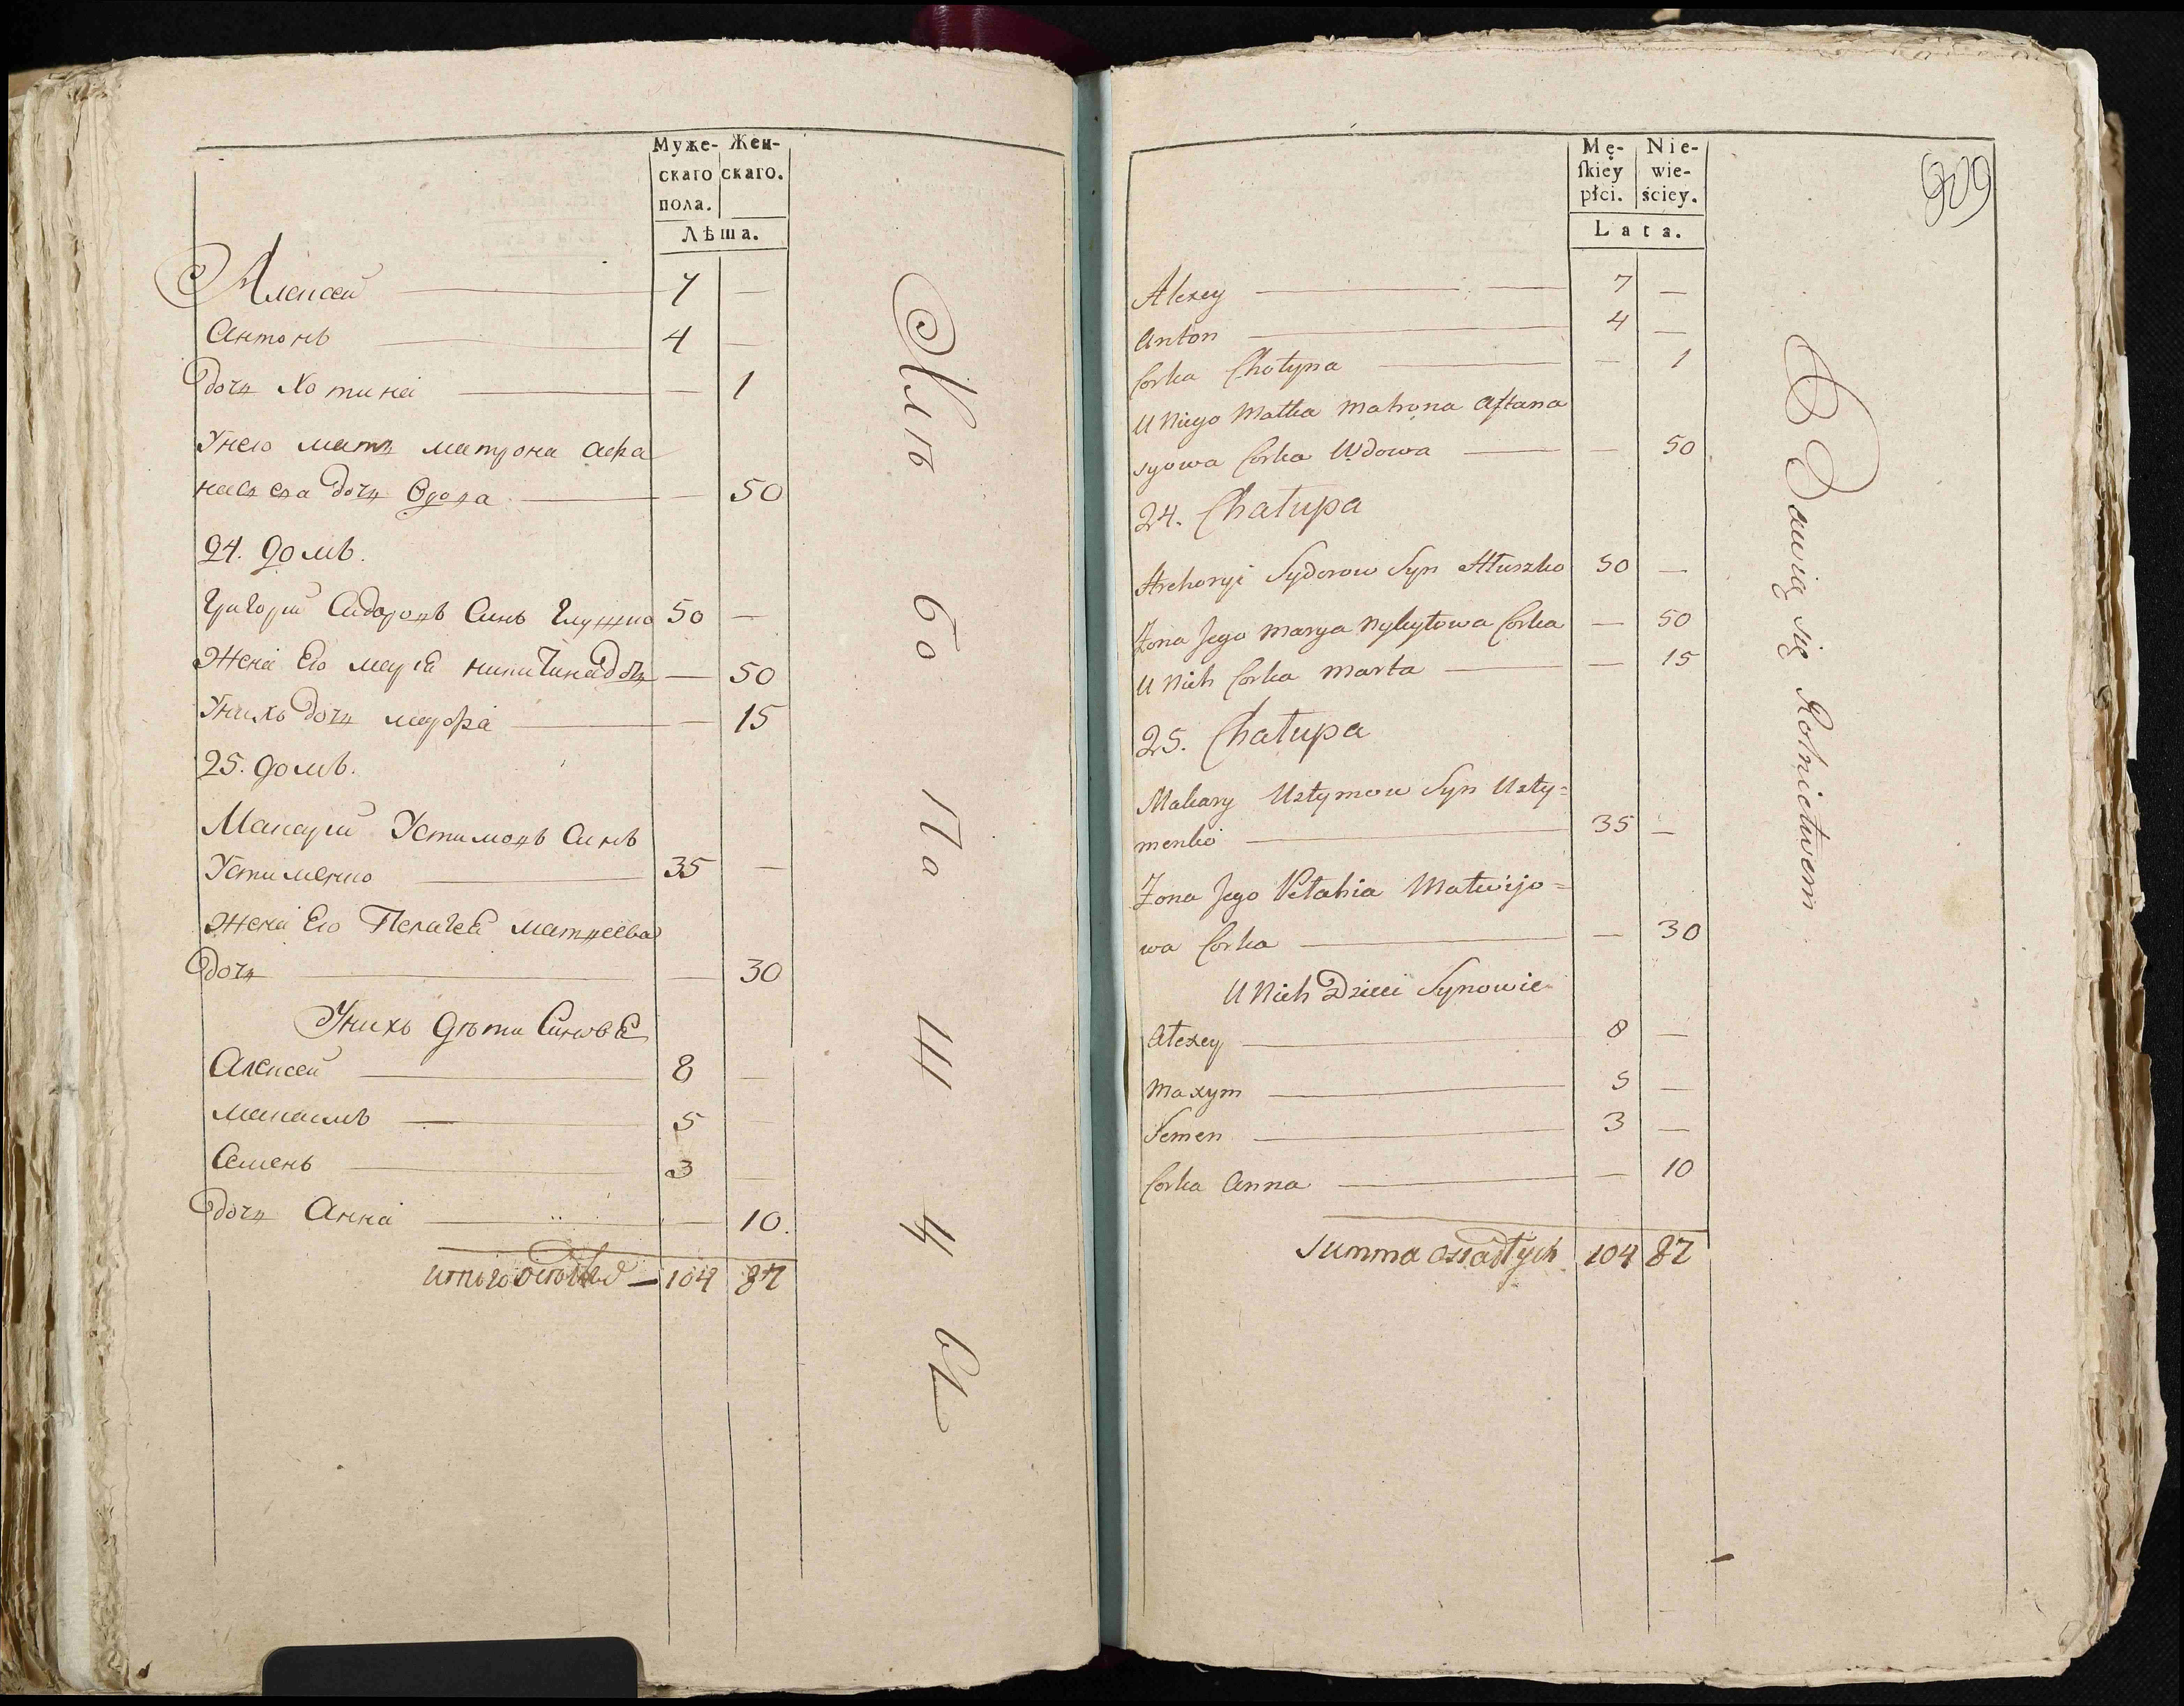 Муже-
скаго
пола.
Жен-
скаго.
Лѣта.
Алексей — 7 —
Антонъ — 4 —
дочь Хотина — — 1
У него мать матрона афа
насьева дочь вдова — — 50
24. домъ.
Григорій Сидоровъ Синъ Глушко 50 —
Жена Его марія никитина дочь — 50
У нихъ дочь марфа — — 15
25. домъ.
Макарій Устимовъ Синъ
Устименко — 35 —
Жена Его Пелагея матвеева
дочь — — 30
У нихъ дѣти Синовья
Алексей — 8 —
макаимъ — 5 —
Семенъ — 3 —
дочь Анна — — 10.
итого — 104 87
Хлѣбо Па Ш
909
Mę-
skiey
płci.
Nie-
wie-
ściey.
Lata.
Alexey — 7 —
Anton — 4 —
Corka Chotyna — — 1
U Niego Matka Matrona Aftana
syowa Corka Wdowa — — 50
24. Chałupa
Hrehoryi Sydorow Syn Hłuszko 50 —
Zona Jego Marya Nykytowa Corka — 50
U Nich Corka Marta — — 15
25. Chałupa
Makary Ustymow Syn Usty=
menko — 35 —
Zona Jego Pełahia Matwijo=
wa Corka — — 30
U Nich Dzieci Synowie
Alexey — 8 —
Maxym — 5 —
Semen — 3 —
Corka Anna — — 10
Summa osiadłych 104 87
Bawią się Rolnictwem